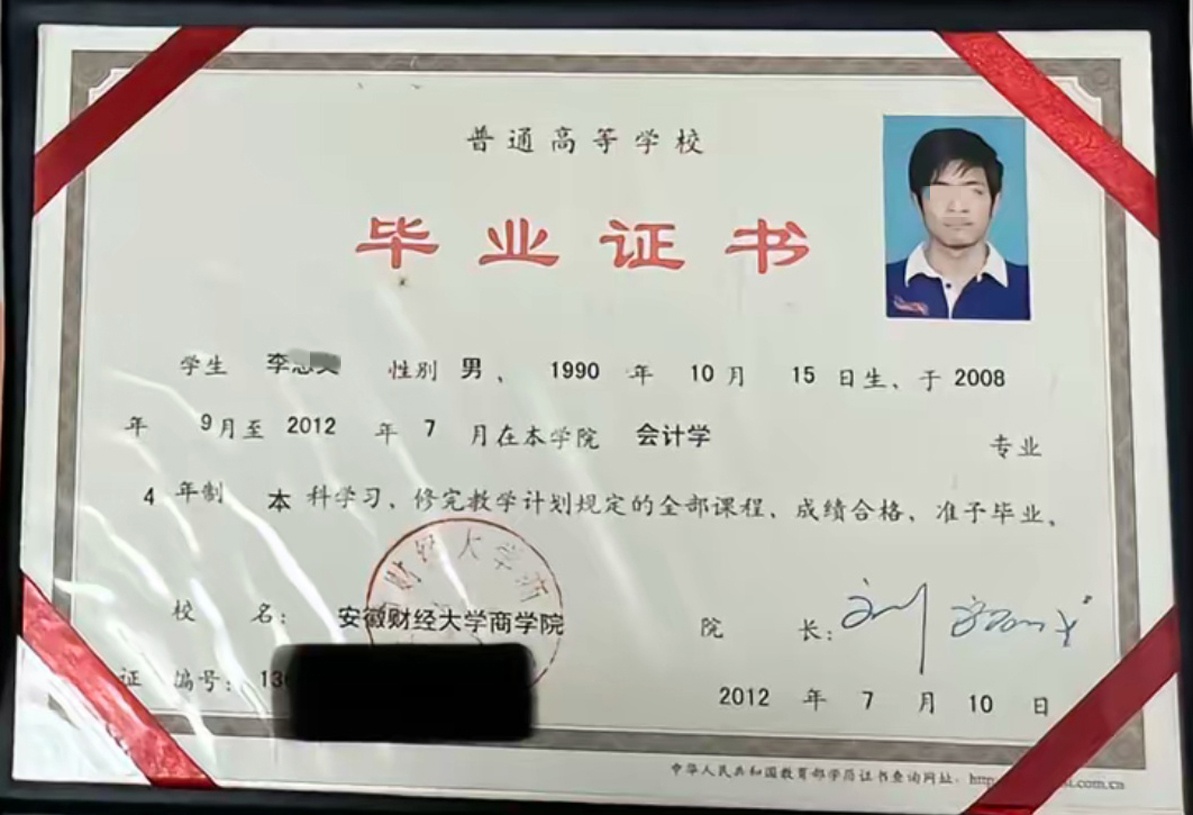 普通高等学校
毕业证书
学生 李 性别 男、 1990 年 10 月 15 日生、于 2008
年 9 月至 2012 年 7 月在本学院 会计学 专业
4 年制 本 科学习、修完教学计划规定的全部课程、成绩合格、准予毕业。
财经大学商
校 名: 安徽财经大学商学院 院 长:
证 编号: 13
2012 年 7 月 10 日
中华人民共和国教育部学历证书查询网址: http .com.cn